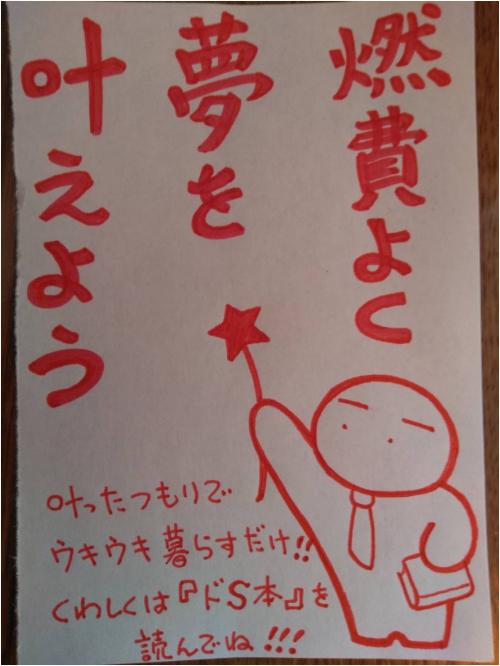 燃費よく
夢を
叶えよう
叶ったつもりで
ウキウキ暮らすだけ!!
くわしくは『ドS本』を
読んでね!!!